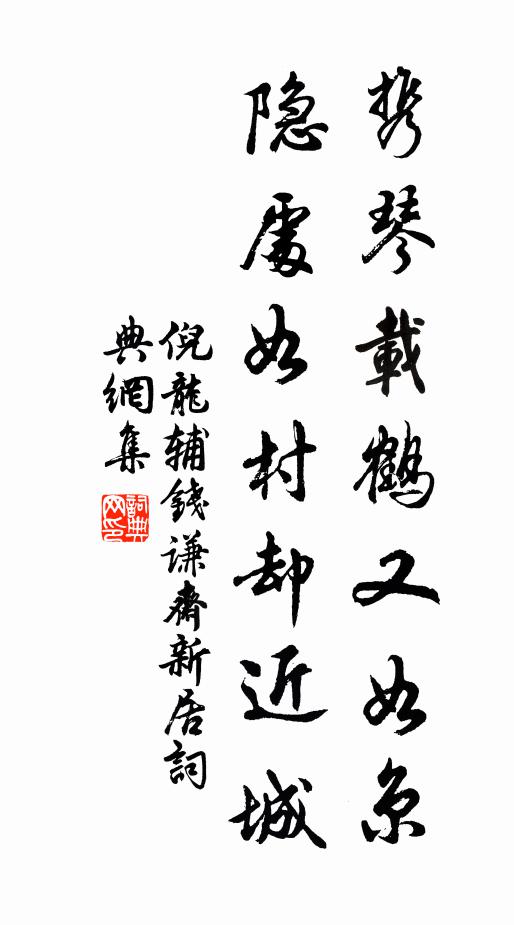 携琴載鶴又如京
隐處如村却近城
倪龍辅錢谦齋新居詞
典網集
詞典網印